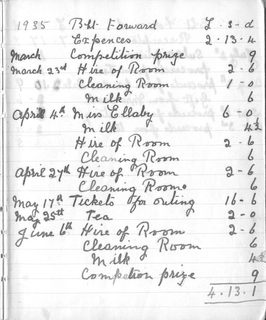 1935 Bt Forward £ - s - d
Expences 2 - 13 - 4
March Competition prize 9
March 23rd Hire of Room 2 - 6
Cleaning Room 1 - 0
Milk 6
April 4th Miss Ellaby 6 - 0
Milk 4½
Hire of Room 2 - 6
Cleaning Room 6
April 27th Hire of Room 2 - 6
Cleaning Room 6
May 17th Tickets for outing 16 - 6
May 25th Tea 2 - 0
June 6th Hire of Room 2 - 6
Cleaning Room 6
Milk 4½
Competion prize 9
4 . 13 . 1